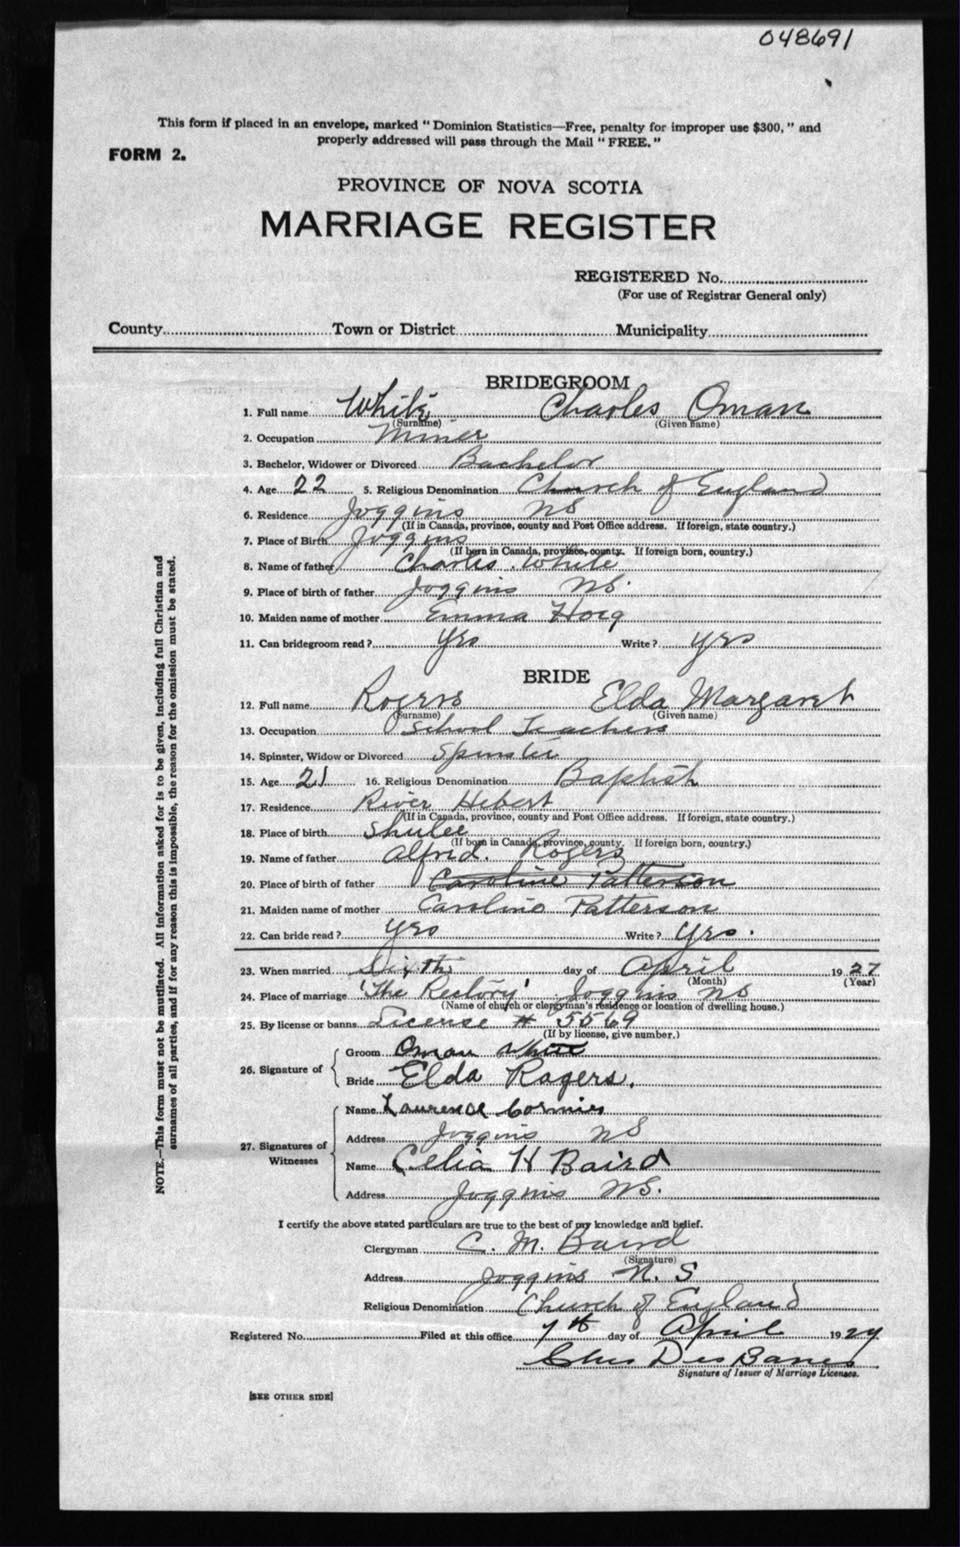 048691
This form if placed in an envelope, marked "Dominion Statistics—Free, penalty for improper use $300," and
properly addressed will pass through the Mail "FREE."
FORM 2.
PROVINCE OF NOVA SCOTIA
MARRIAGE REGISTER
REGISTERED No.
(For use of Registrar General only)
County Town or District Municipality
BRIDEGROOM
1. Full name White Charles Oman
(Surname) (Given name)
2. Occupation Miner
3. Bachelor, Widower or Divorced Bachelor
4. Age 22 5. Religious Denomination Church of England
6. Residence Joggins NS
(If in Canada, province, county and Post Office address. If foreign, state country.)
7. Place of Birth Joggins
(If born in Canada, province, county. If foreign born, country.)
8. Name of father Charles White
9. Place of birth of father Joggins NS.
10. Maiden name of mother Emma Hoeg
11. Can bridegroom read? Yes Write? yes
BRIDE
12. Full name Rogers Elda Margaret
(Surname) (Given name)
13. Occupation School Teacher
14. Spinster, Widow or Divorced Spinster
15. Age 21 16. Religious Denomination Baptist
17. Residence River Hebert
(If in Canada, province, county and Post Office address. If foreign, state country.)
18. Place of birth Shulee
(If born in Canada, province, county. If foreign born, country.)
19. Name of father Alfred. Rogers
20. Place of birth of father Caroline Patterson
21. Maiden name of mother Caroline Patterson
22. Can bride read? yes Write? Yes.
23. When married Sixth day of April 1927
(Month) (Year)
24. Place of marriage 'The Rectory' Joggins NS
(Name of church or clergyman's residence or location of dwelling house.)
25. By license or banns License # 5569
(If by license, give number.)
26. Signature of
Groom Oman White
Bride Elda Rogers.
27. Signatures of Witnesses
Name Laurence Cormier
Address Joggins NS
Name Celia H Baird
Address Joggins NS.
I certify the above stated particulars are true to the best of my knowledge and belief.
Clergyman C. M. Baird
(Signature)
Address Joggins N.S
Religious Denomination Church of England
Registered No. Filed at this office 7th day of April 1927
Chas Des Barres
Signature of Issuer of Marriage Licenses.
[SEE OTHER SIDE]
NOTE.—This form must not be mutilated. All information asked for is to be given, including full Christian and
surnames of all parties, and if for any reason this is impossible, the reason for the omission must be stated.